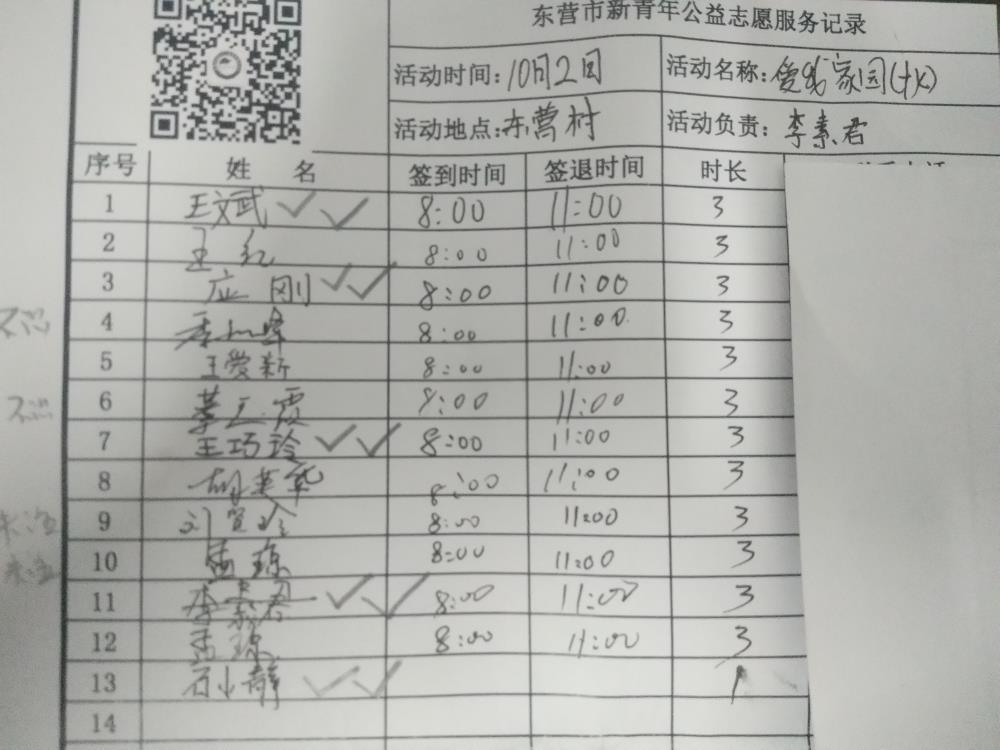 东营市新青年公益志愿服务记录
活动时间：10月2日 活动名称：爱我家园
活动地点：东营村 活动负责：李素君
序号 姓 名 签到时间 签退时间 时长
1 王文武 ✓✓ 8:00 11:00 3
2 王红 8:00 11:00 3
3 应刚 ✓✓ 8:00 11:00 3
4 8:00 11:00 3
5 王爱新 8:00 11:00 3
6 8:00 11:00 3
7 王巧玲 ✓✓ 8:00 11:00 3
8 胡英华 8:00 11:00 3
9 8:00 11:00 3
10 孟琼 8:00 11:00 3
11 李素君 ✓✓ 8:00 11:00 3
12 孟琼 8:00 11:00 3
13 石小静 ✓✓
14